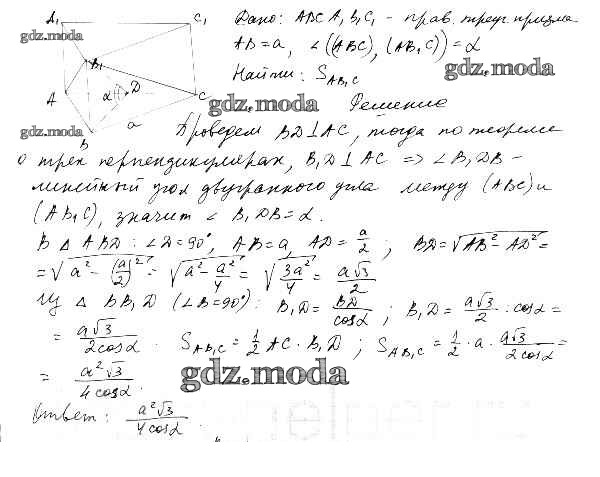 A₁ C₁ Дано: ABCA₁B₁C₁ - прав. треуг. призма
gdz.moda
AB = a, ∠((ABC), (AB₁C)) = α
B₁
Найти: S_AB₁C gdz.moda
A α D C
gdz.moda Решение
gdz.moda
a
B Проведем BD⊥AC, тогда по теореме
о трех перпендикулярах, B₁D ⊥ AC => ∠B₁DB -
линейный угол двугранного угла между (ABC) и
(AB₁C), значит ∠ B₁DB = α.
В △ ABD: ∠D = 90°, AB = a, AD = a/2 ; BD = √(AB² - AD²) =
= √(a² - (a/2)²) = √(a² - a²/4) = √(3a²/4) = a√3/2
Из △ BB₁D (∠B = 90°): B₁D = BD/cosα ; B₁D = a√3/2 : cosα =
= a√3/2cosα . S_AB₁C = 1/2 AC · B₁D ; S_AB₁C = 1/2 · a · a√3/2cosα =
= a²√3/4cosα .
gdz.moda
Ответ: a²√3/4cosα .